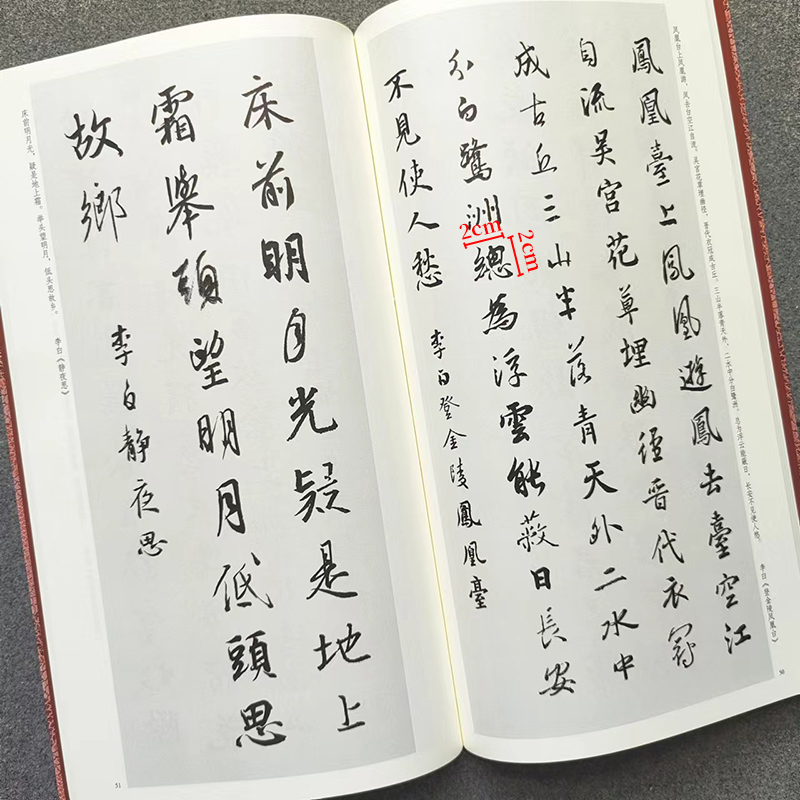 凤凰台上凤凰游，凤去台空江自流。吴宫花草埋幽径，晋代衣冠成古丘。三山半落青天外，二水中分白鹭洲。总为浮云能蔽日，长安不见使人愁。
李白《登金陵凤凰台》
50
鳳凰臺上鳳凰遊鳳去臺空江
自流吴宫花草埋幽徑晋代衣冠
成古丘三山半落青天外二水中
分白鷺洲總為浮雲能蔽日長安
不見使人愁
李白登金陵鳳凰臺
2cm
2cm
床前明月光疑是地上
霜舉頭望明月低頭思
故鄉
李白静夜思
床前明月光，疑是地上霜。举头望明月，低头思故乡。
李白《静夜思》
51